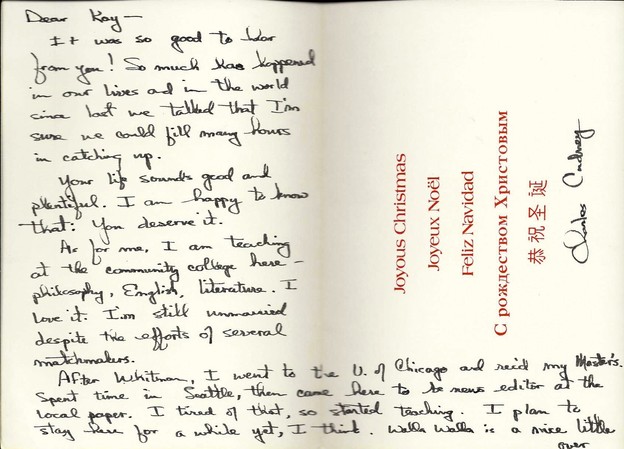 Dear Kay —
It was so good to hear
from you! So much has happened
in our lives and in the world
since last we talked that I'm
sure we could fill many hours
in catching up.
Your life sounds good and
plentiful. I am happy to know
that: You deserve it.
As for me, I am teaching
at the community college here –
philosophy, English, literature. I
love it. I'm still unmarried
despite the efforts of several
matchmakers.
After Whitman, I went to the U. of Chicago and rec'd my Master's.
Spent time in Seattle, then came here to be news editor at the
local paper. I tired of that, so started teaching. I plan to
stay here for a while yet, I think. Walla Walla is a nice little
over
Joyous Christmas
Joyeux Noël
Feliz Navidad
С рождеством Христовым
恭祝圣诞
Charles